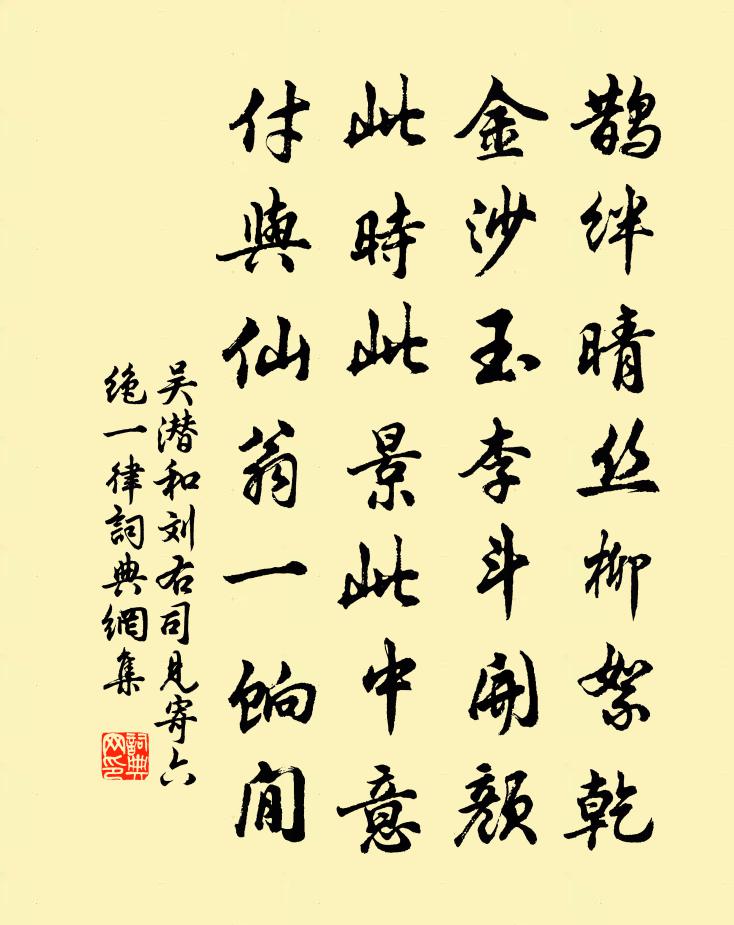 鹊绊晴丝柳絮乾
金沙玉李斗開顏
此時此景此中意
付與仙翁一餉间
吴潜和刘右司見寄六
绝一律詞典網集
詞典网印